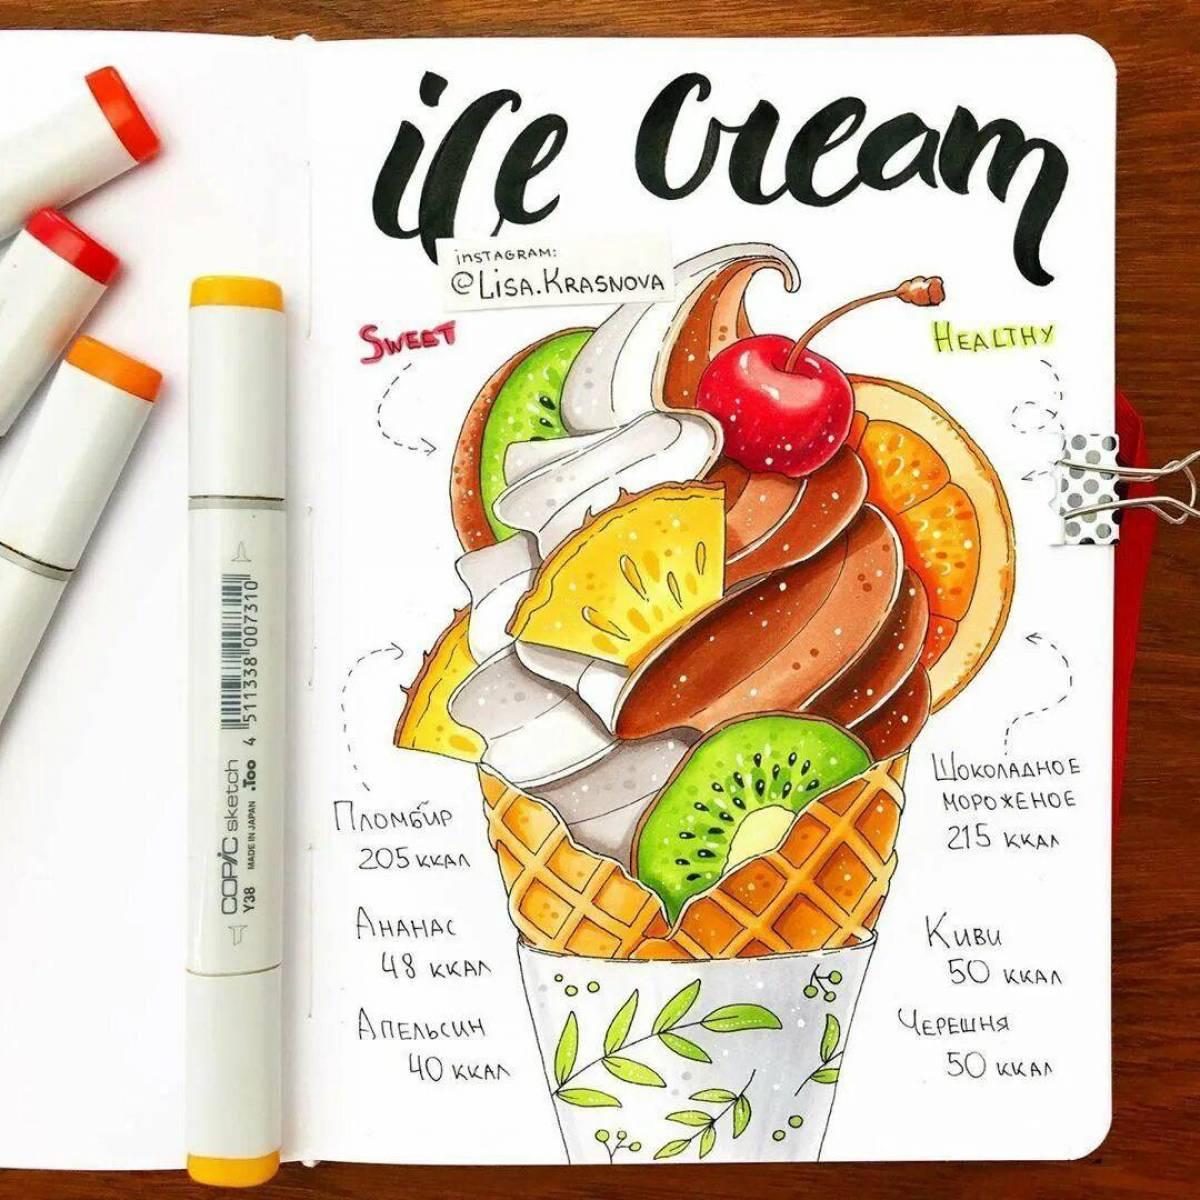 ice cream
instagram:
@Lisa.Krasnova
Sweet
Healthy
Пломбир
205 ккал
Шоколадное
мороженое
215 ккал
Ананас
48 ккал
Киви
50 ккал
Апельсин
40 ккал
Черешня
50 ккал
4 511338 007310
COPIC sketch
MADE IN JAPAN .Too
Y38